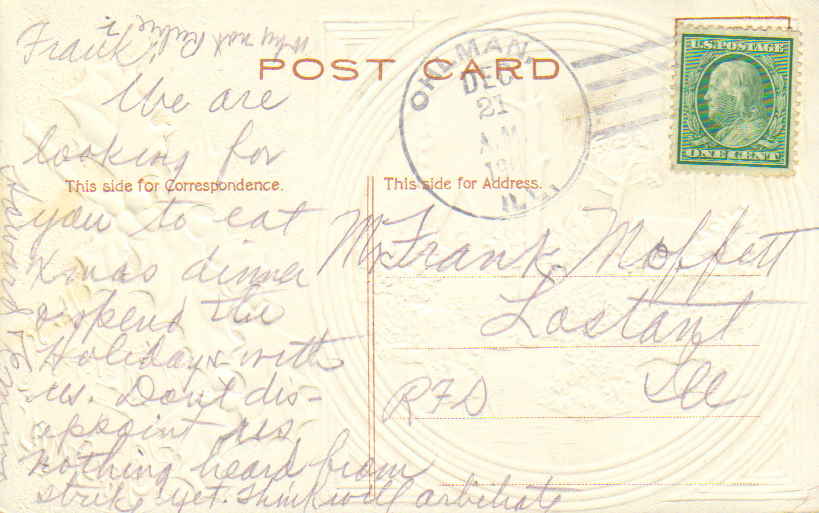 Frank,
Why not
POST CARD
OHLMAN,
DEC
21
A.M
ILL.
U.S. POSTAGE
ONE CENT
We are
looking for
This side for Correspondence.
you to eat
Xmas dinner
& spend the
Holidays with
us. Dont dis-
appoint us,
nothing heard from
strike yet. Think will arbitrate
Howard &
This side for Address.
Mr Frank Moffett
Lostant
Ill
RFD